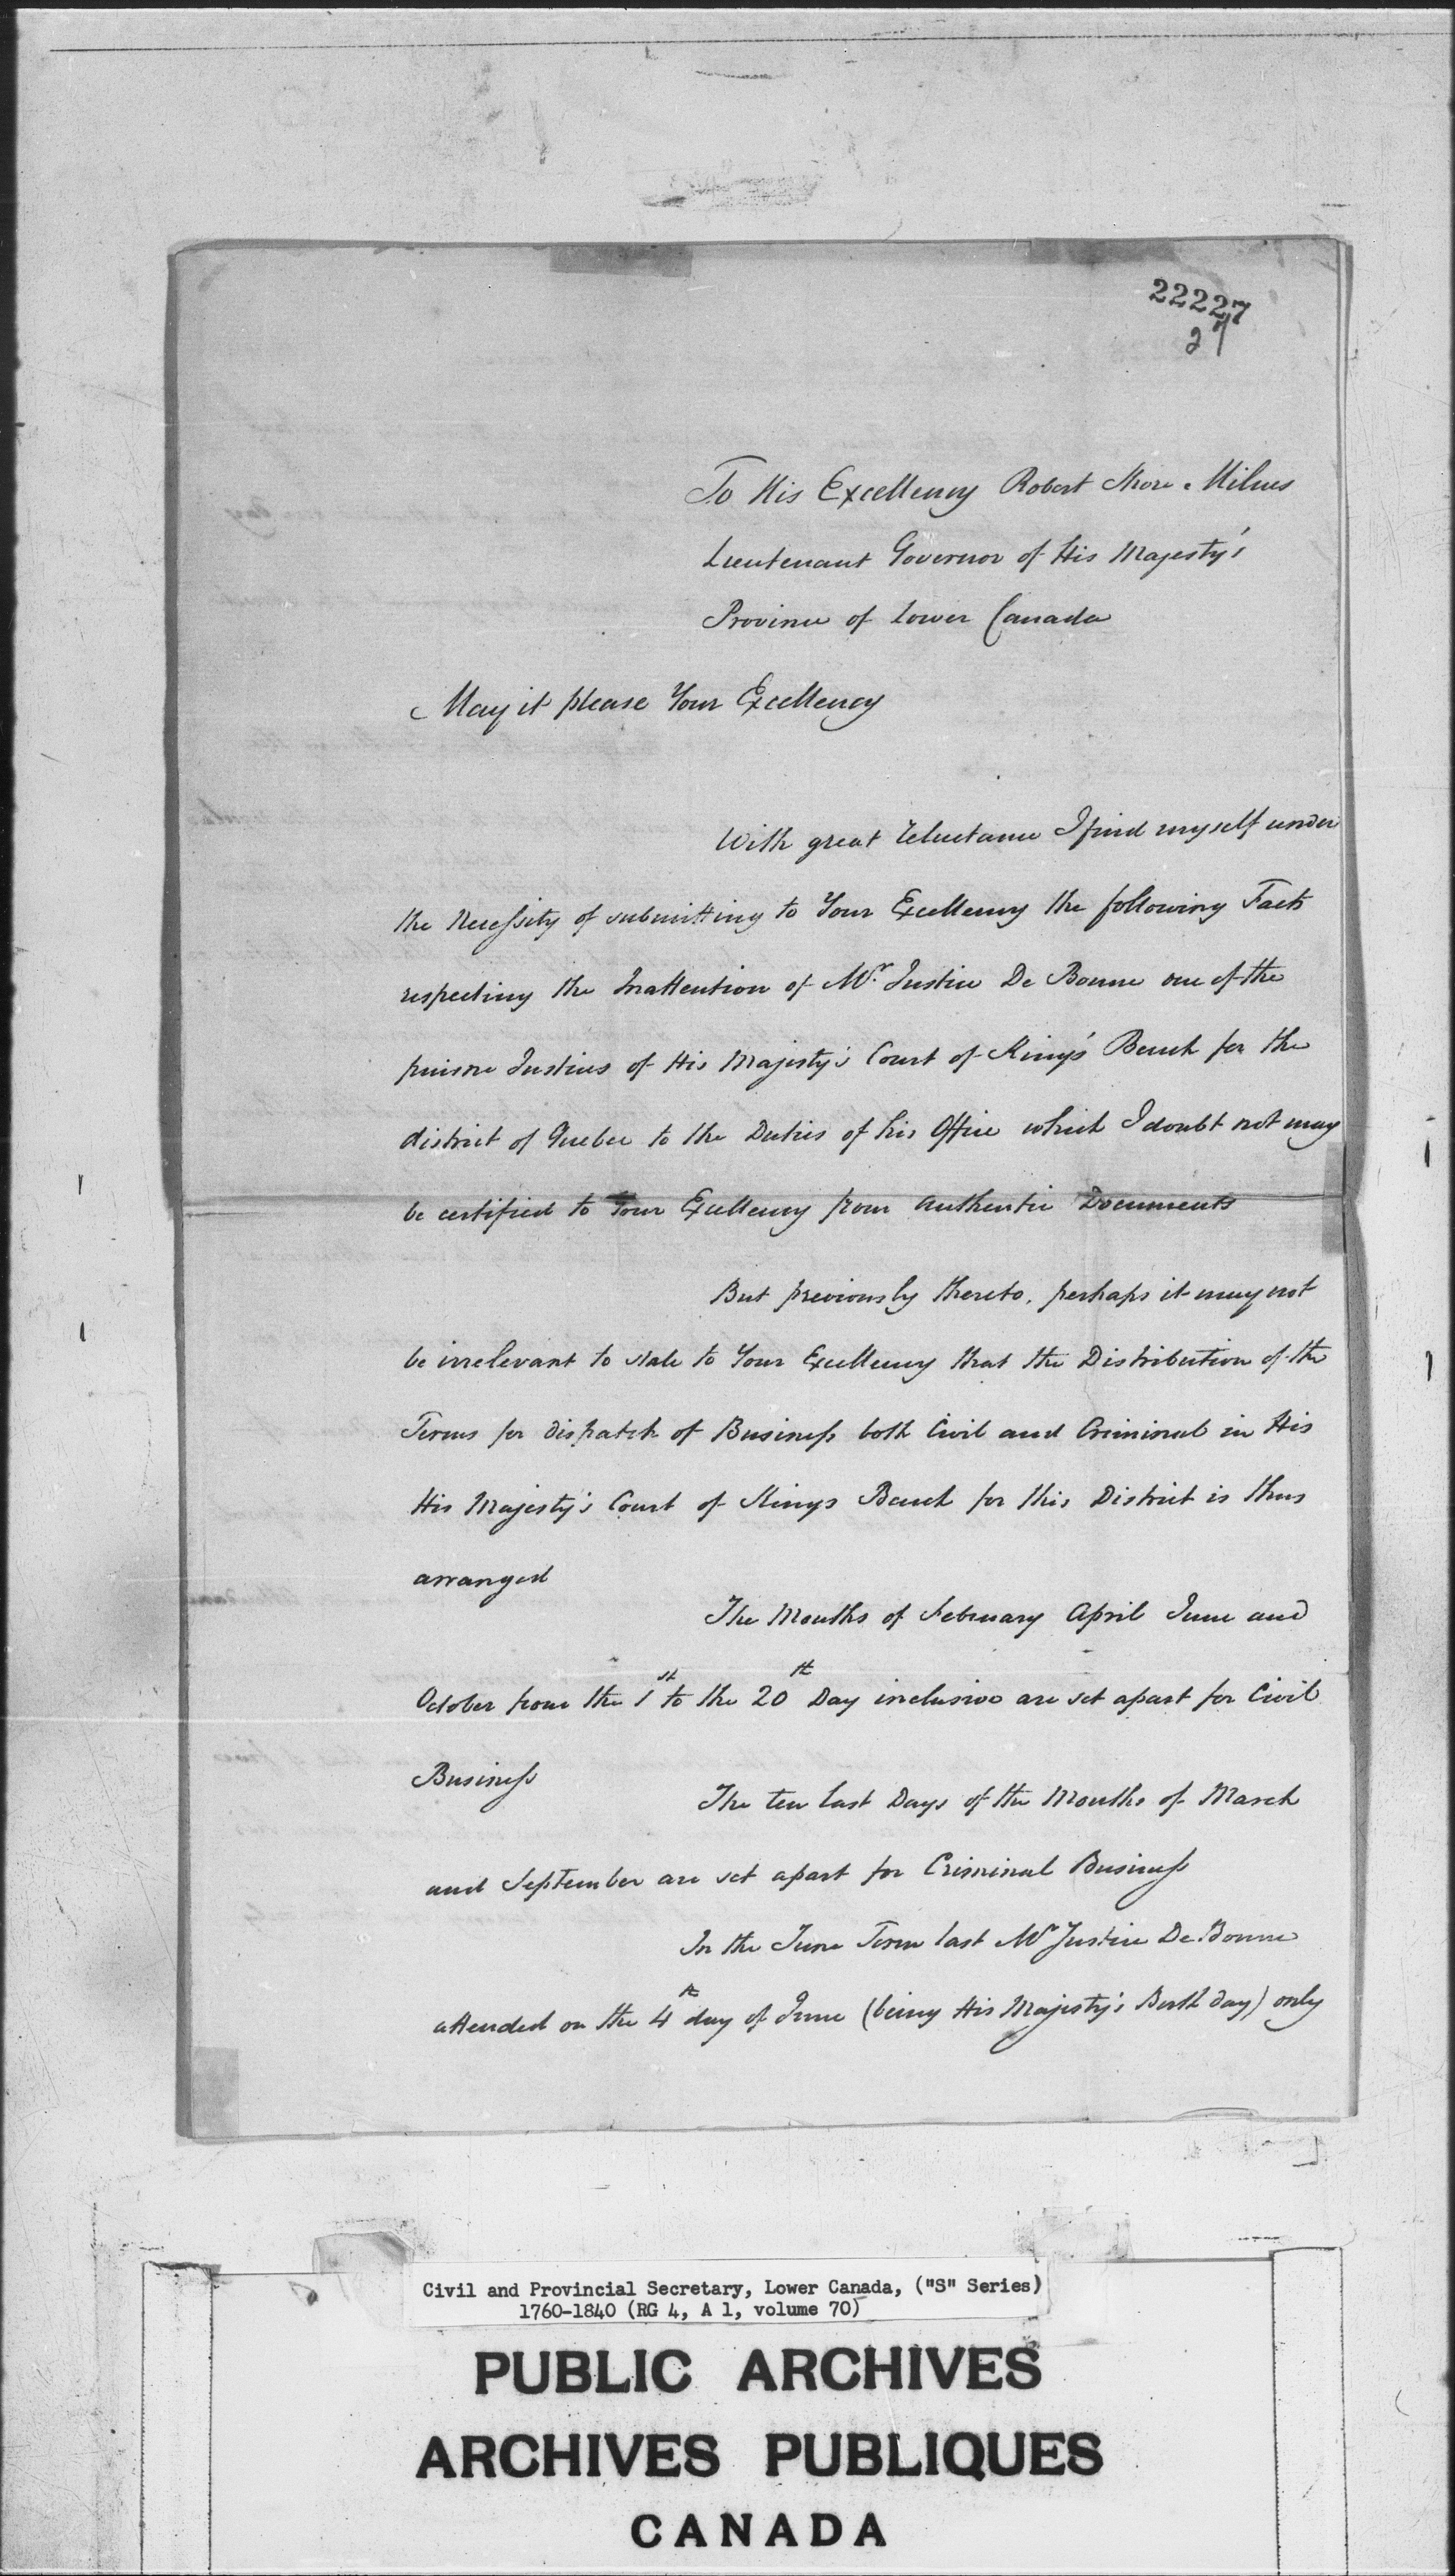 22227
27
To His Excellency Robert Shore Milnes
Lieutenant Governor of His Majesty's
Province of Lower Canada
May it please Your Excellency
With great reluctance I find myself under
the Necessity of submitting to Your Excellency the following Facts
respecting the Inattention of Mr. Justice De Bonne one of the
puisne Justices of His Majesty's Court of King's Bench for the
district of Quebec to the Duties of his Office which I doubt not may
be certified to Your Excellency from authentic Documents
But previously thereto, perhaps it may not
be irrelevant to state to Your Excellency that the Distribution of the
Terms for dispatch of Business both Civil and Criminal in His
His Majesty's Court of Kings Bench for this District is thus
arranged
The Months of February April June and
October from the 1st to the 20th Day inclusive are set apart for Civil
Business
The ten last Days of the Months of March
and September are set apart for Criminal Business
In the June Term last Mr Justice De Bonne
attended on the 4th day of June (being His Majesty's Birth day) only
Civil and Provincial Secretary, Lower Canada, ("S" Series)
1760-1840 (RG 4, A 1, volume 70)
PUBLIC ARCHIVES
ARCHIVES PUBLIQUES
CANADA